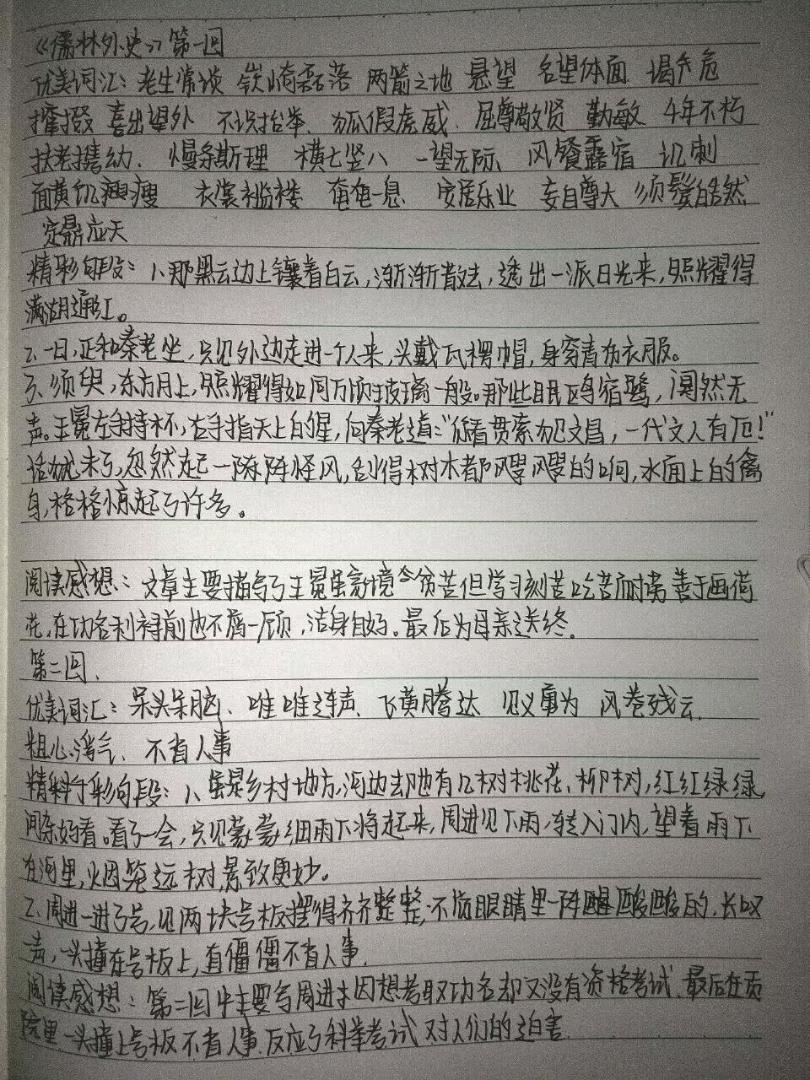 《儒林外史》第一回
优美词汇：老生常谈 嵚崎磊落 两箭之地 悬望 名望体面 竭力危
撺掇 喜出望外 不识抬举、狐假虎威、屈尊敬贤 勤敏 年不朽
扶老携幼、慢条斯理 横七竖八 一望无际、风餐露宿 讥刺
面黄饥瘦 衣裳褴褛 奄奄一息、安居乐业 妄自尊大 须鬓皓然
定鼎应天
精彩句段：1、那黑云边上镶着白云，渐渐散去，透出一派日光来，照耀得
满湖通红。
2、一日，正和秦老坐，只见外边走进一个人来，头戴瓦楞帽，身穿青布衣服。
3、须臾，东方月上，照耀得如同万顷玻璃一般。那些眠鸥宿鹭，阒然无
声。王冕左手持杯，右手指天上的星，向秦老道："你看贯索犯文昌，一代文人有厄！"
话犹未了，忽然起一阵阵怪风，刮得树木都飕飕的响，水面上的禽
鸟，格格惊起了许多。
阅读感想：文章主要描写了王冕虽家境贫苦但学习刻苦吃苦耐劳善于画荷
花，在功名利禄前也不屑一顾，洁身自好。最后为母亲送终。
第二回、
优美词汇：呆头呆脑、唯唯连声、飞黄腾达 见义勇为 风卷残云、
粗心浮气、不省人事
精彩句段：1、虽是乡村地方，河边却也有几树桃花、柳树，红红绿绿，
间杂好看。看了一会，只见蒙蒙细雨下将起来，周进见下雨，转入门内，望着雨下
在河里，烟笼远树，景致更妙。
2、周进一进了号，见两块号板摆得齐齐整整，不觉眼睛里一阵酸酸的，长叹一
声，一头撞在号板上，直僵僵不省人事、
阅读感想：第二回中主要写周进因想考取功名却又没有资格考试、最后在贡
院里一头撞上号板不省人事、反应了科举考试对人们的迫害